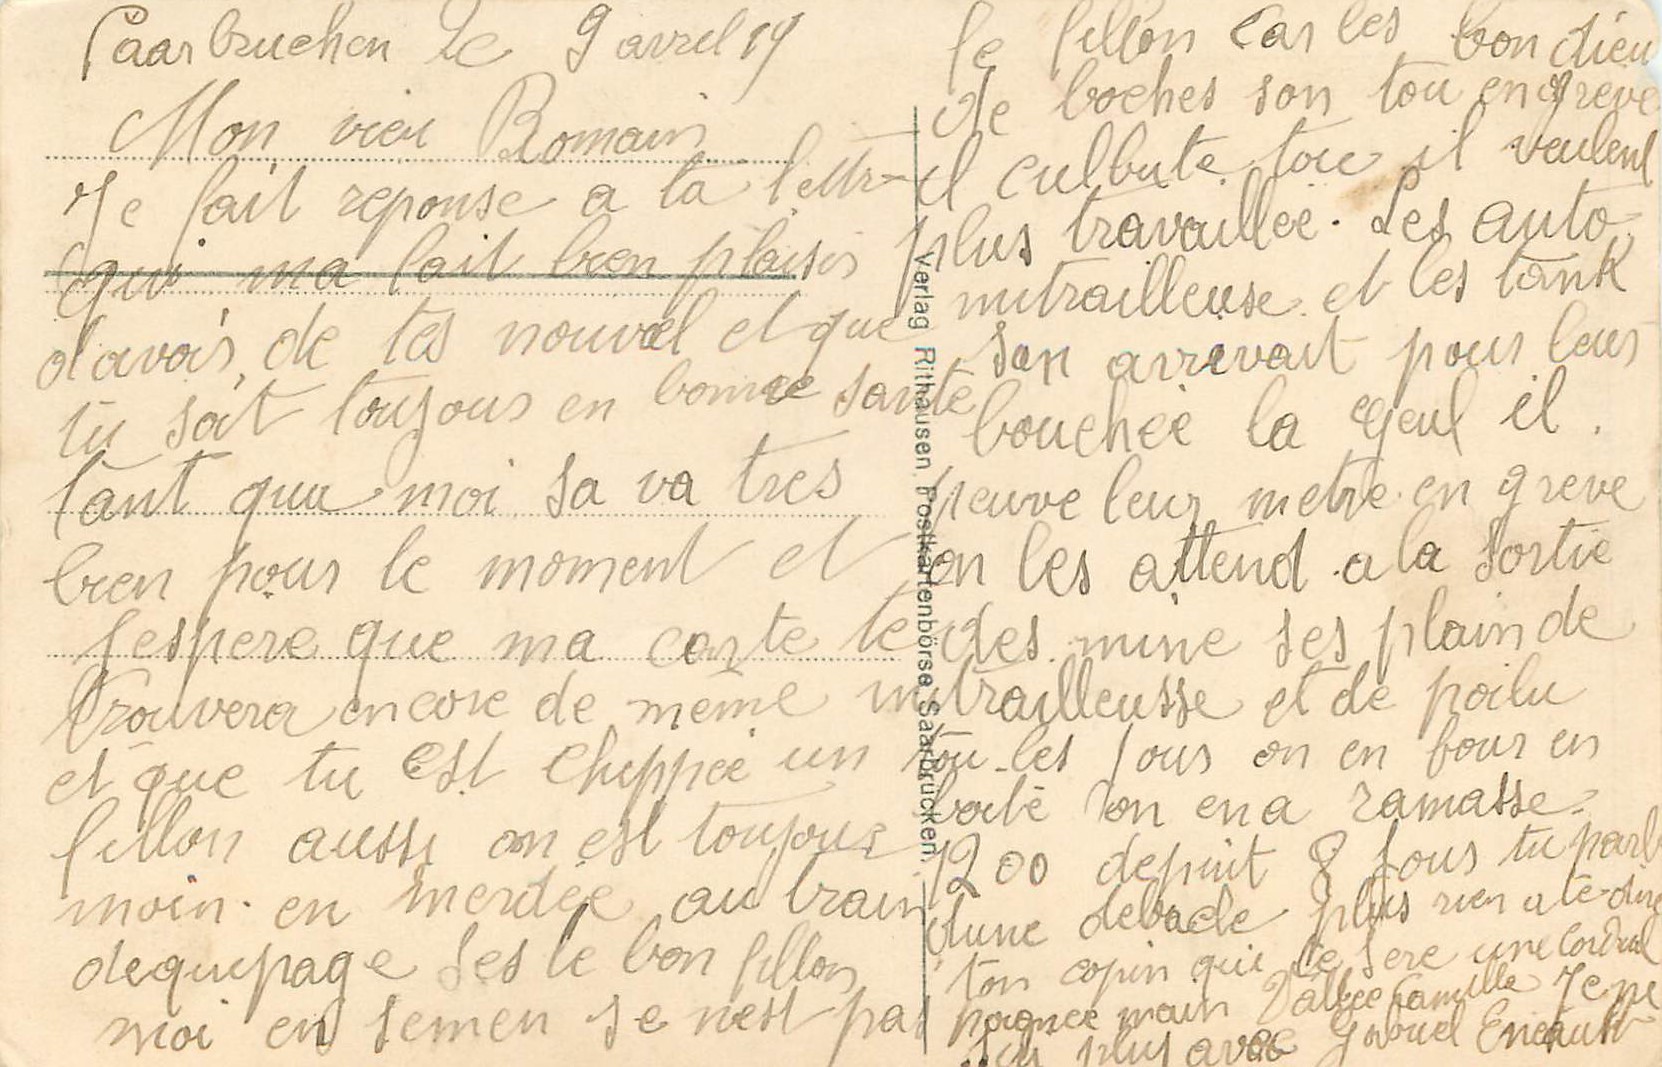 Saarbruchen le 9 avrel 19
Mon vieu Romain
Je fait reponse a ta lettre
qui ma fait bien plaisir
d'avoir de tes nouvel et que
tu soit toujous en bonne santé
tant qua moi sa va tres
bien pour le moment et
jespere que ma carte te
trouvera encore de même
et que tu est chippée un
fillon aussi on est toujour
moin en merdée au train
dequipage ses le bon fillon
moi en semen se n'est pas
le fillon car les bon dieu
de boches son tou en greve
il culbute tou il veulent
plus travaillée. Les auto
mitrailleuse et les tank
son arrivait pour leur
bouchée la geul il
peuve leur metre en greve
on les attend a la sortie
des mine ses plain de
mitrailleusse et de poilu
tou les jous on en bour en
boite on en a ramasse
1200 depuit 8 jous tu parle
dune debacle plus rien a te dire
ton copin qui te sere une cordial
poignee main Vallée Camille Je ne
suis plus avec Gabriel
Verlag Rithausen, Postkartenbörse, Saarbrücken.